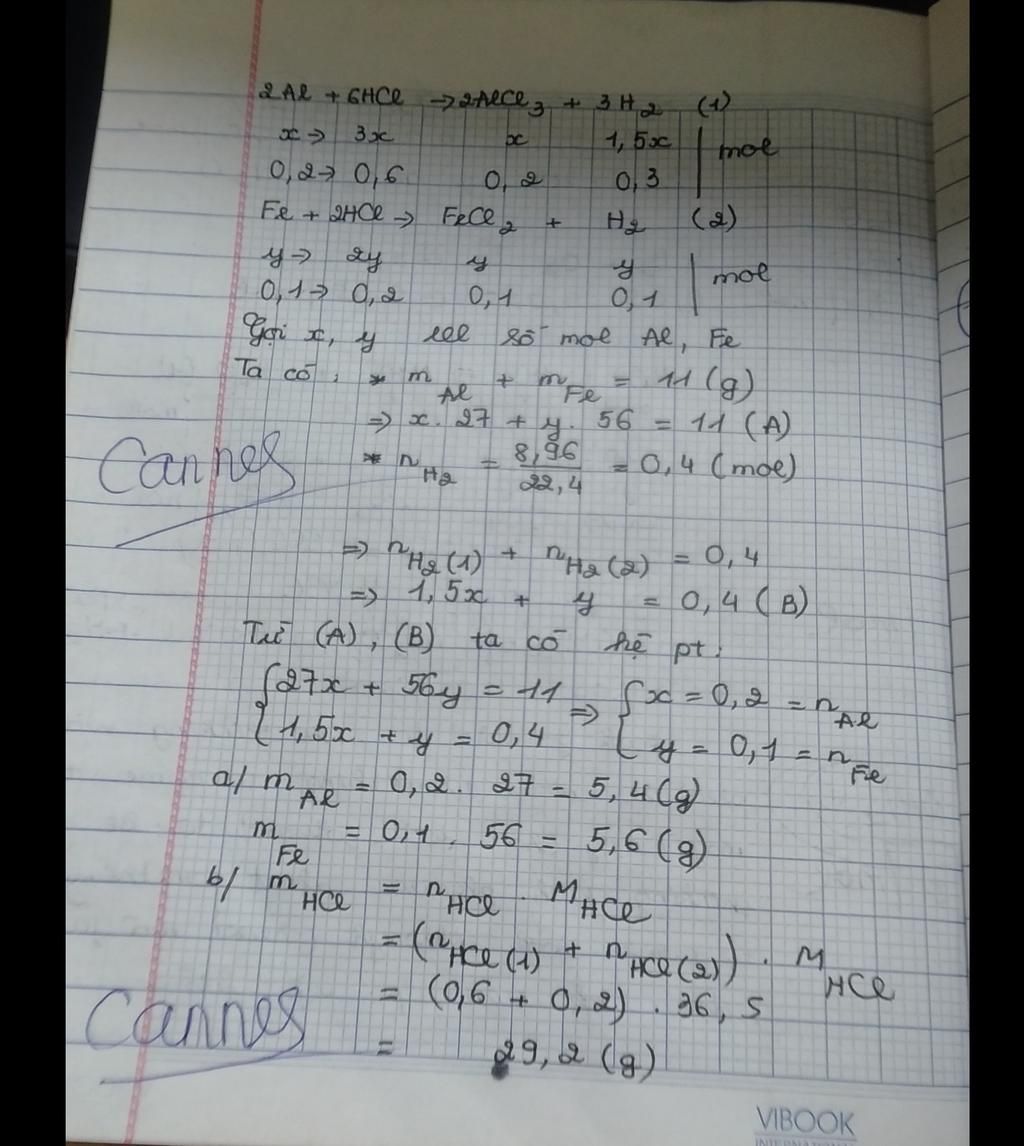 2Al + 6HCl → 2AlCl3 + 3H2 (1)
x → 3x x 1,5x | mol
0,2 → 0,6 0,2 0,3
Fe + 2HCl → FeCl2 + H2 (2)
y → 2y y y | mol
0,1 → 0,2 0,1 0,1
Gọi x, y là số mol Al, Fe
Ta có: * m Al + m Fe = 11 (g)
⇒ x. 27 + y. 56 = 11 (A)
* n H2 = 8,96 / 22,4 = 0,4 (mol)
Cannes
⇒ n H2 (1) + n H2 (2) = 0,4
⇒ 1,5x + y = 0,4 (B)
Từ (A), (B) ta có hệ pt:
{ 27x + 56y = 11 ⇒ { x = 0,2 = n Al
{ 1,5x + y = 0,4 { y = 0,1 = n Fe
a/ m Al = 0,2. 27 = 5,4 (g)
m Fe = 0,1. 56 = 5,6 (g)
b/ m HCl = n HCl . M HCl
= (n HCl (1) + n HCl (2)) . M HCl
= (0,6 + 0,2) . 36,5
Cannes
= 29,2 (g)
VIBOOK
INTERNATIONAL